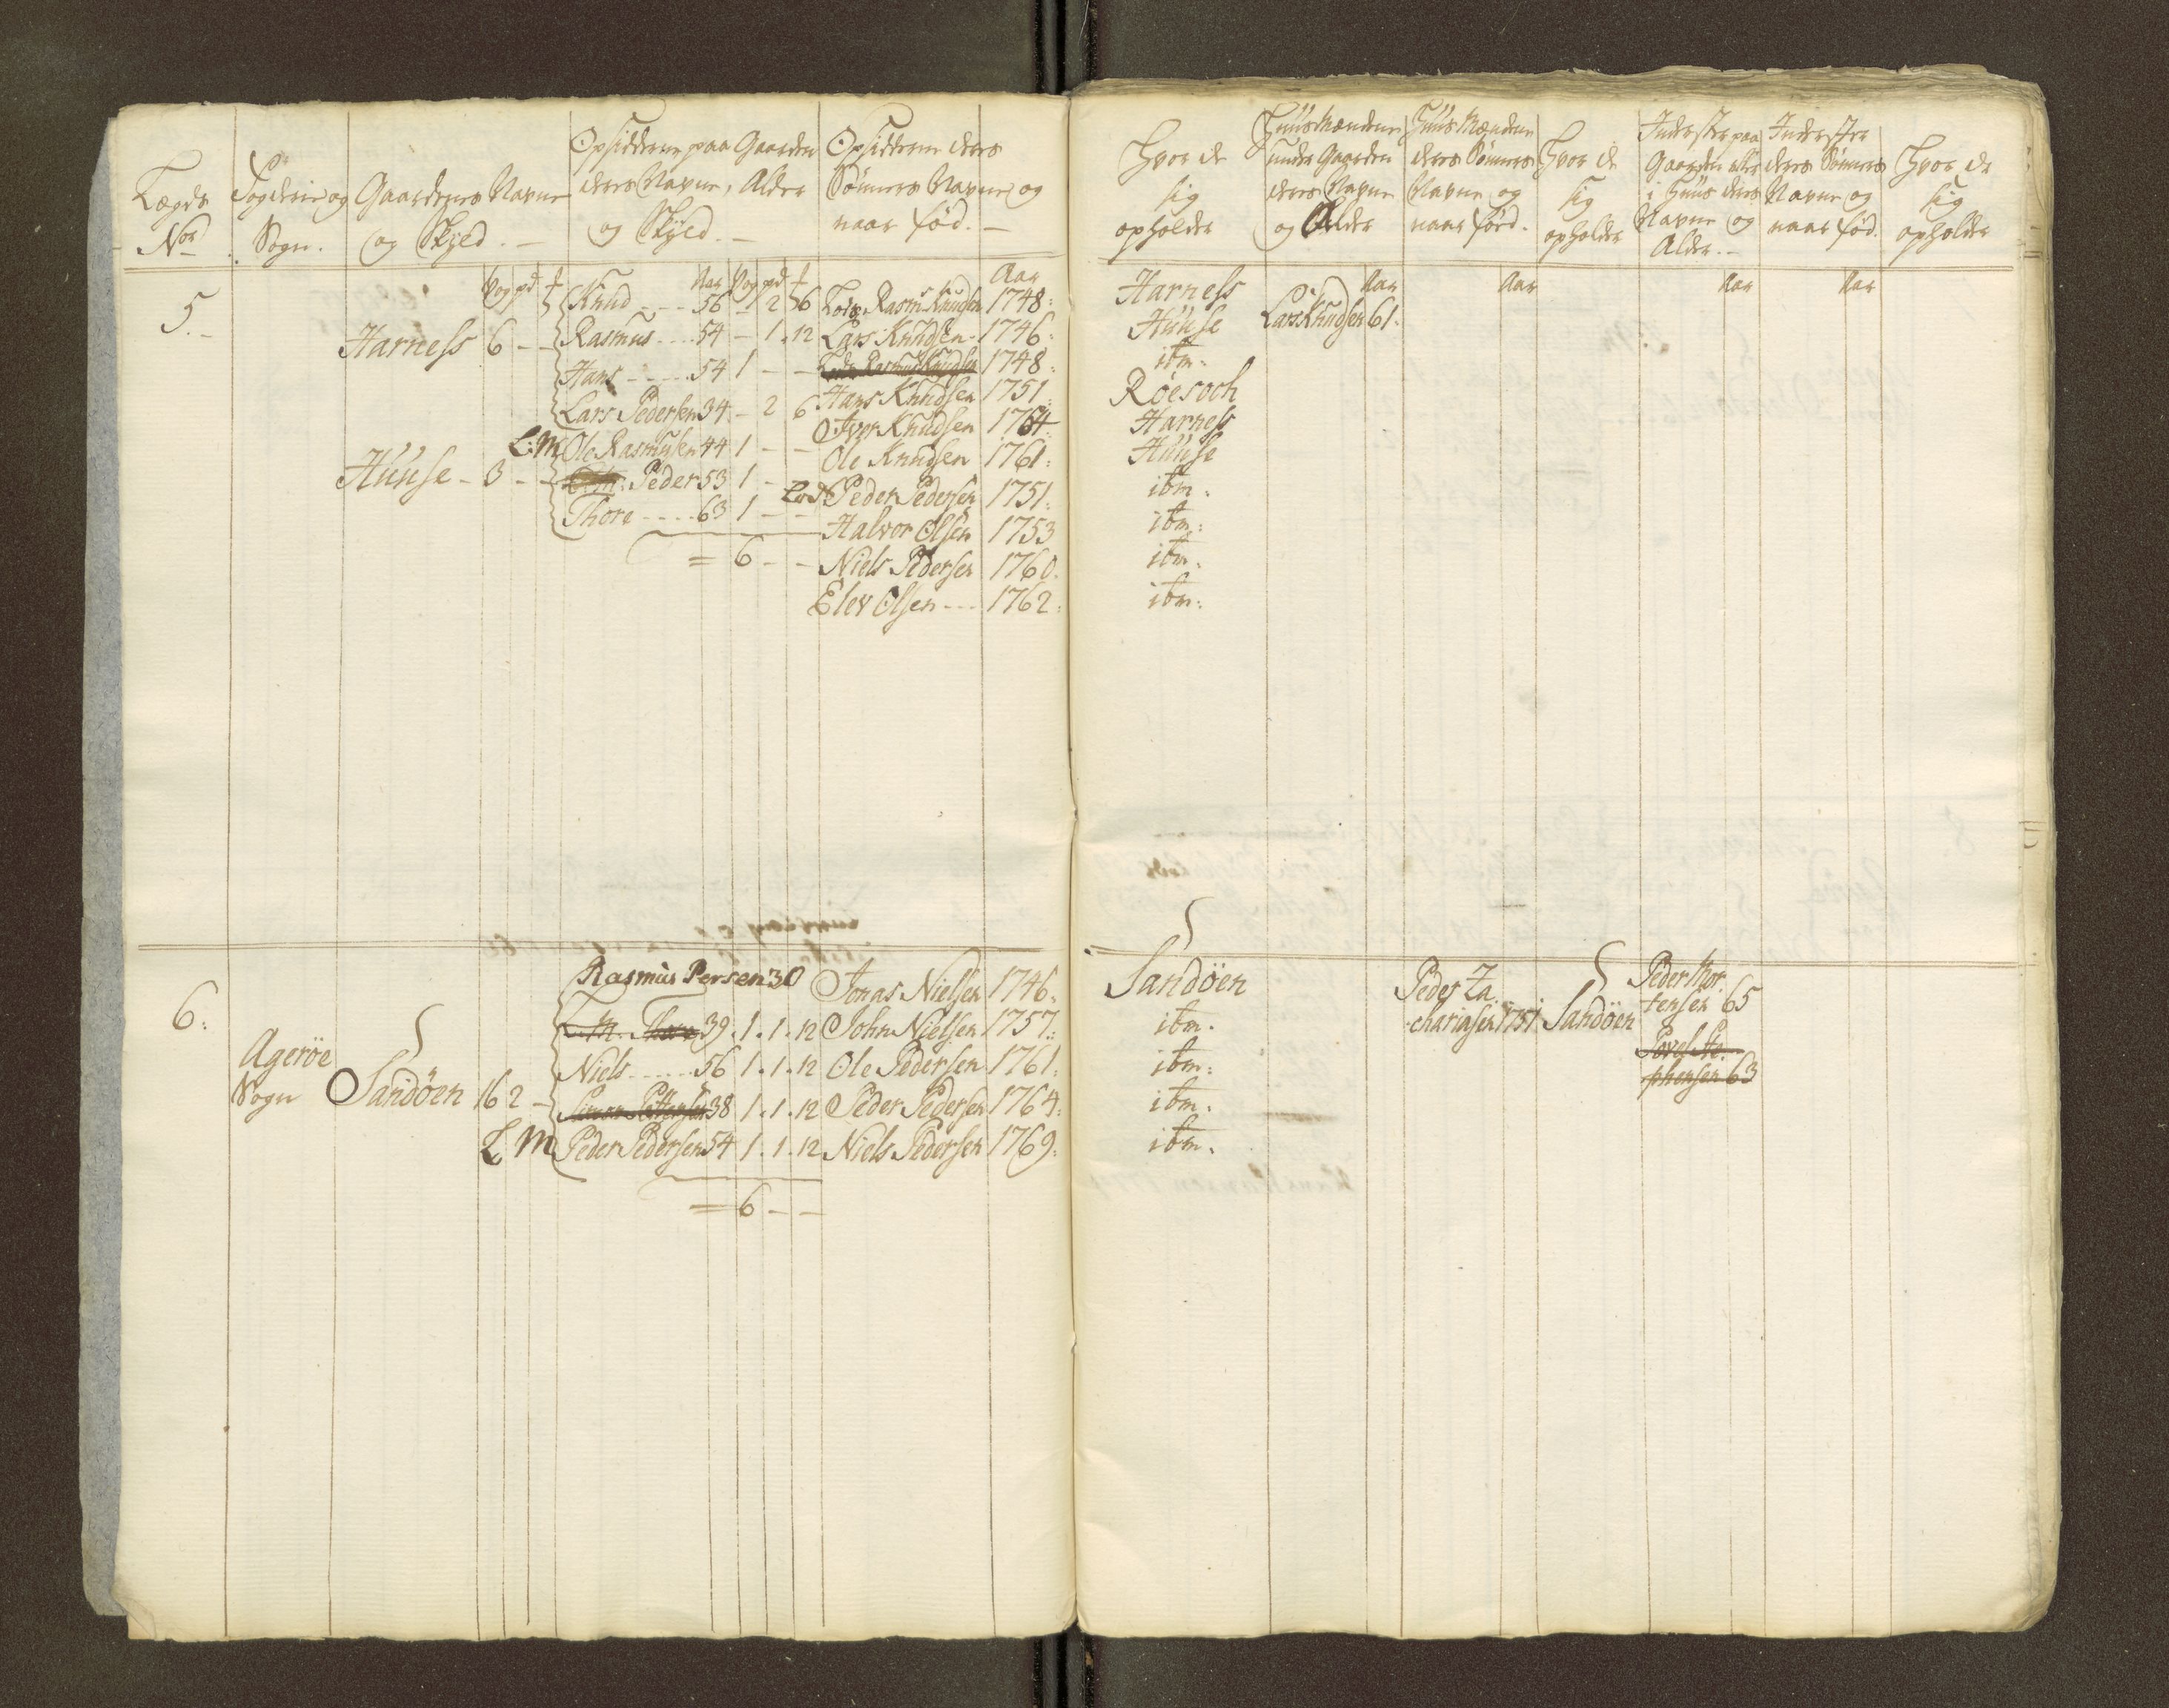 Lægds
No
Fogderie og
Sogn.
Gaardenes Navne
og Skyld.
Opsidderne paa Gaarden
deres Navne, Alder
og Skyld.
Opsidderne deres
Sönners Navne og
naar fød.
Hvor de
sig
opholder
Huusmændene
under Gaarden
deres Navne
og Alder
Huusmændene
deres Sönners
Navne og
naar fød.
Hvor de
sig
opholder
Inderster paa
Gaarden eller
i Huus deres
Navne og
Alder.
Inderster
deres Sönners
Navne og
naar fød.
Hvor de
sig
opholder
Vog pd
Aar Vog pd
Aar
Aar
Aar
Aar
Aar
5.
Knud 56 - 2 6 Rasms Knudsen 1748 Harness
Harness 6 - - Rasmus 54 - 1. 12 Lars Knudsen 1746 Huuse Lars Knudsen 61.
Hans 54 1 - - Rasmus Knudsen 1748 ibm:
Lars Pedersen 34 - 2 6 Hans Knudsen 1751 Röesoch
L:M Ole Rasmusen 44 1 - - Iver Knudsen 1764 Harness
Huuse - 3 - - Ole Knudsen 1761 Huuse
Peder 53 1 - - Peder Pedersen 1751 ibm.
Thore 63 1 - - Halvor Olsen 1753 ibm:
= 6 - - Niels Pedersen 1760. ibm.
Elev Olsen 1762 ibm:
6:
Rasmus Persen 30 Jonas Nielsen 1746. Sandöen Peder Za
chariasen 1751 Sandöen
Peder Mor
tensen 65
L. M. Thore 39. 1. 1. 12 John Nielsen 1757. ibm.
Agerøe
Sogn
Niels 56 1. 1. 12 Ole Pedersen 1761. ibm:
Povel Ste
phensen 63
Sandöen 16 2 - Simon Pettersen 38 1. 1. 12 Peder Pedersen 1764. ibm.
L M Peder Pedersen 54 1. 1. 12 Niels Pedersen 1769. ibm.
= 6 - -